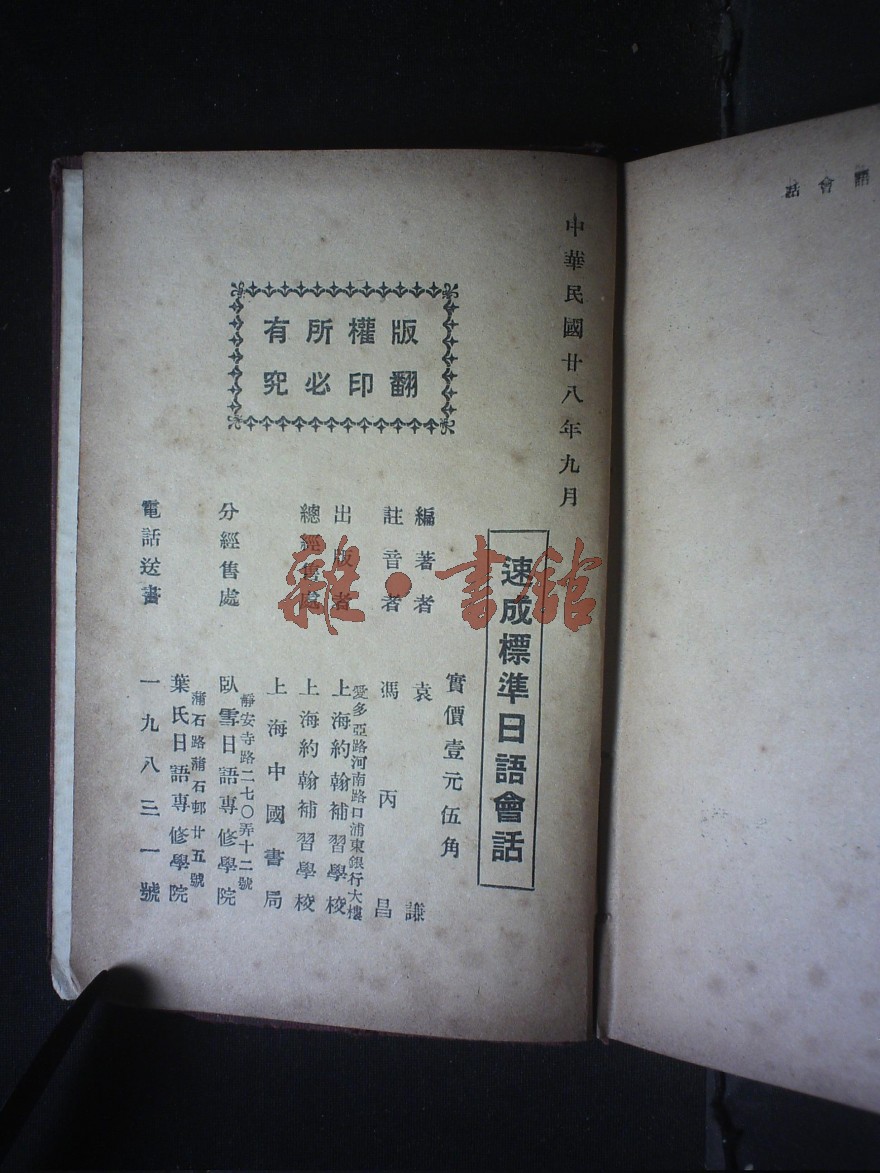 語會話
中華民國廿八年九月
版權所有
翻印必究
速成標準日語會話
實價壹元伍角
編著者 袁謙
註音者 馮丙昌
愛多亞路河南路口浦東銀行大樓
出版者 上海約翰補習學校
總經售處 上海約翰補習學校
上海中國書局
靜安寺路二七〇弄十二號
分經售處 臥雪日語專修學院
蒲石路蒲石邨廿五號
葉氏日語專修學院
電話送書 一九八三一號
雜·書館